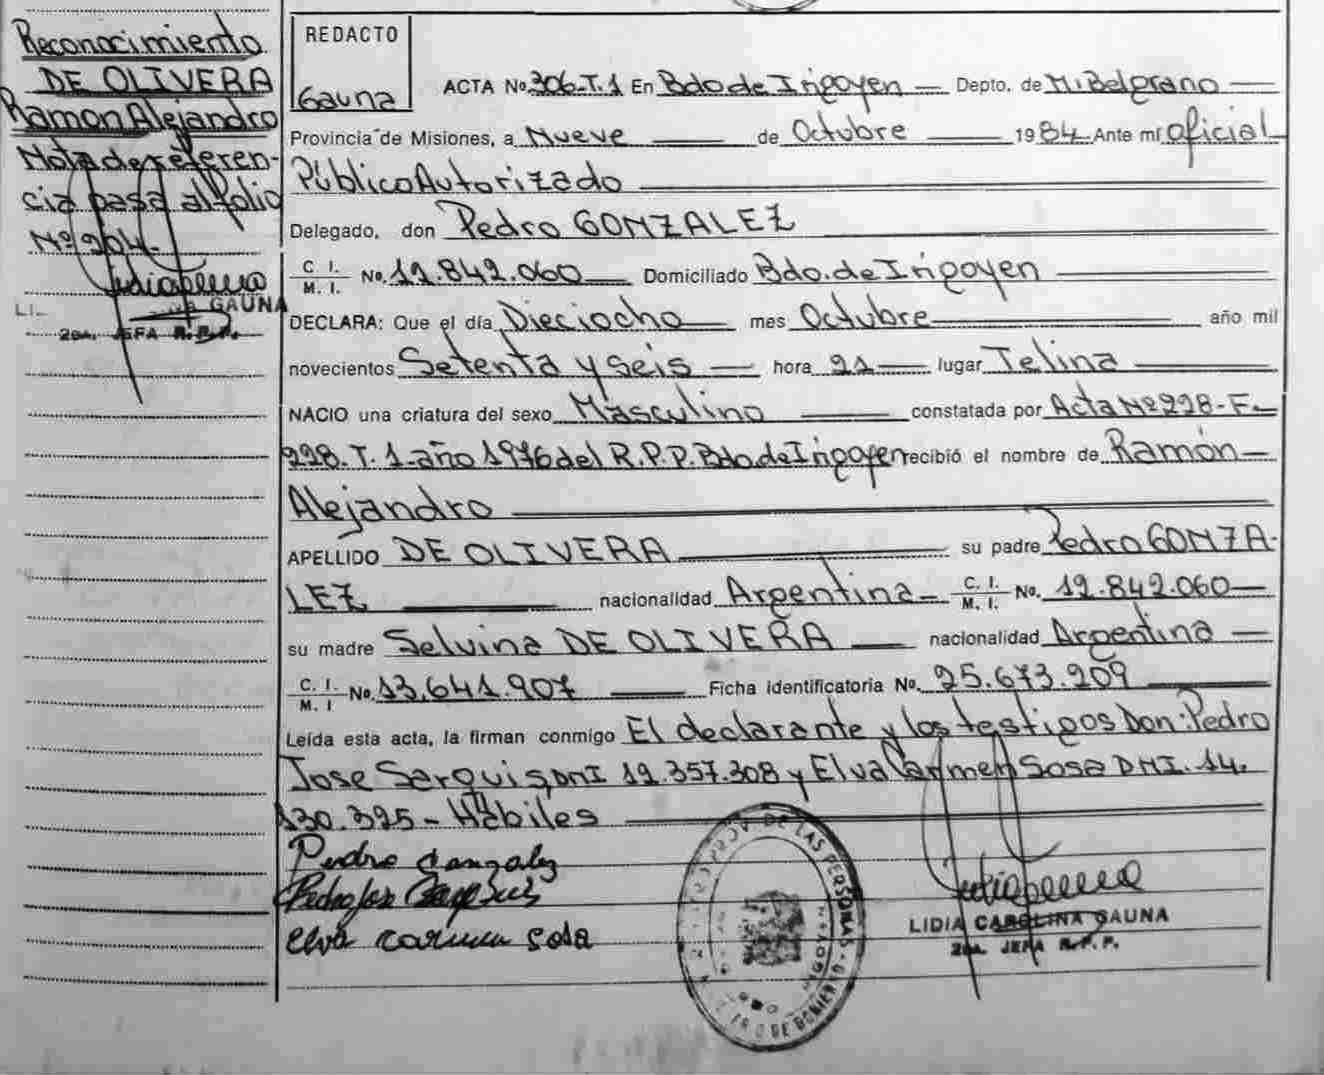 Reconocimiento
DE OLIVERA
Ramon Alejandro
Nota de referen-
cia pasa al folio
Nº 204.
GAUNA
2da. JEFA R.P.P.
REDACTO
Gauna
ACTA No 306-T.1 En Bdo de Irigoyen — Depto. de M. Belgrano —
Provincia de Misiones, a Nueve — de Octubre — 1984 Ante mí Oficial
Público Autorizado
Delegado, don Pedro GONZALEZ
C. I. M. I. No. 12.842.060 — Domiciliado Bdo. de Irigoyen
DECLARA: Que el día Dieciocho — mes Octubre — año mil
novecientos Setenta y seis — hora 21 — lugar Telina
NACIO una criatura del sexo Masculino — constatada por Acta Nº 228-F-
228. T. 1-año 1976 del R.P.P. Bdo. de Irigoyen recibió el nombre de Ramón —
Alejandro
APELLIDO DE OLIVERA — su padre Pedro GONZA-
LEZ — nacionalidad Argentina — C. I. M. I. No. 12.842.060 —
su madre Selvina DE OLIVERA — nacionalidad Argentina —
C. I. M. I No. 13.641.907 — Ficha identificatoria No. 25.673.209
Leída esta acta, la firman conmigo El declarante y los testigos Don: Pedro
Jose Serquis, DNI 12.357.308 y Elva Carmen Sosa DNI. 14.
130.325 - Hábiles
Pedro Gonzalez
Pedro Jose
Elva Carmen Sosa
DE LAS PERSONAS
LIDIA CAROLINA GAUNA
2da. JEFA R.P.P.